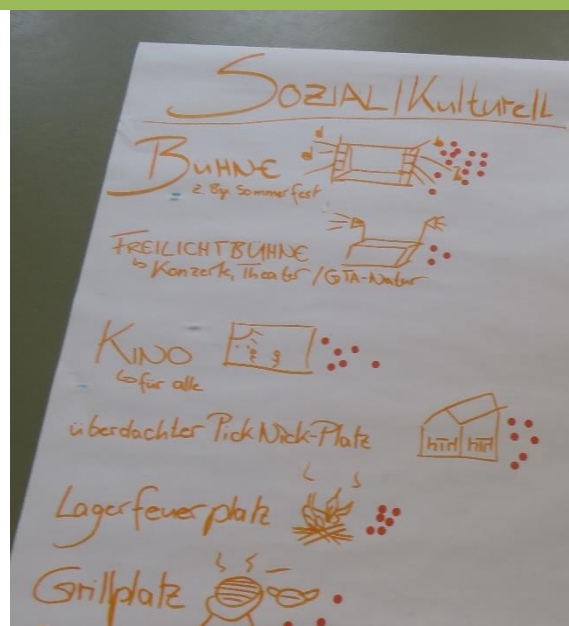 SOZIAL/Kulturell
BÜHNE
z. Bsp. Sommerfest
FREILICHTBÜHNE
↳ Konzerte, Theater/GTA-Natur
KINO
↳ für alle
überdachter PickNick-Platz
Lagerfeuerplatz
Grillplatz